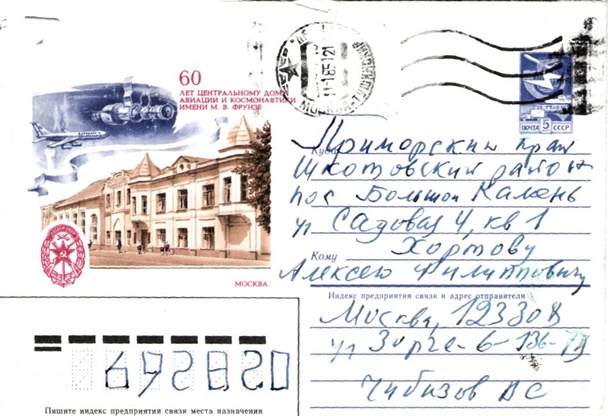 60
ЛЕТ ЦЕНТРАЛЬНОМУ ДОМУ
АВИАЦИИ И КОСМОНАВТИКИ
ИМЕНИ М. В. ФРУНЗЕ
МОСКВА
ПОЧТА 5 СССР
Куда Приморский край
Шкотовский район
пос Большой Камень
ул Садовая 4, кв 1
Кому Хортову
Алексею Филипповичу
Индекс предприятия связи и адрес отправителя
Москва, 123308
ул Зорге-6-136-
Чибизов ВС
Пишите индекс предприятия связи места назначения